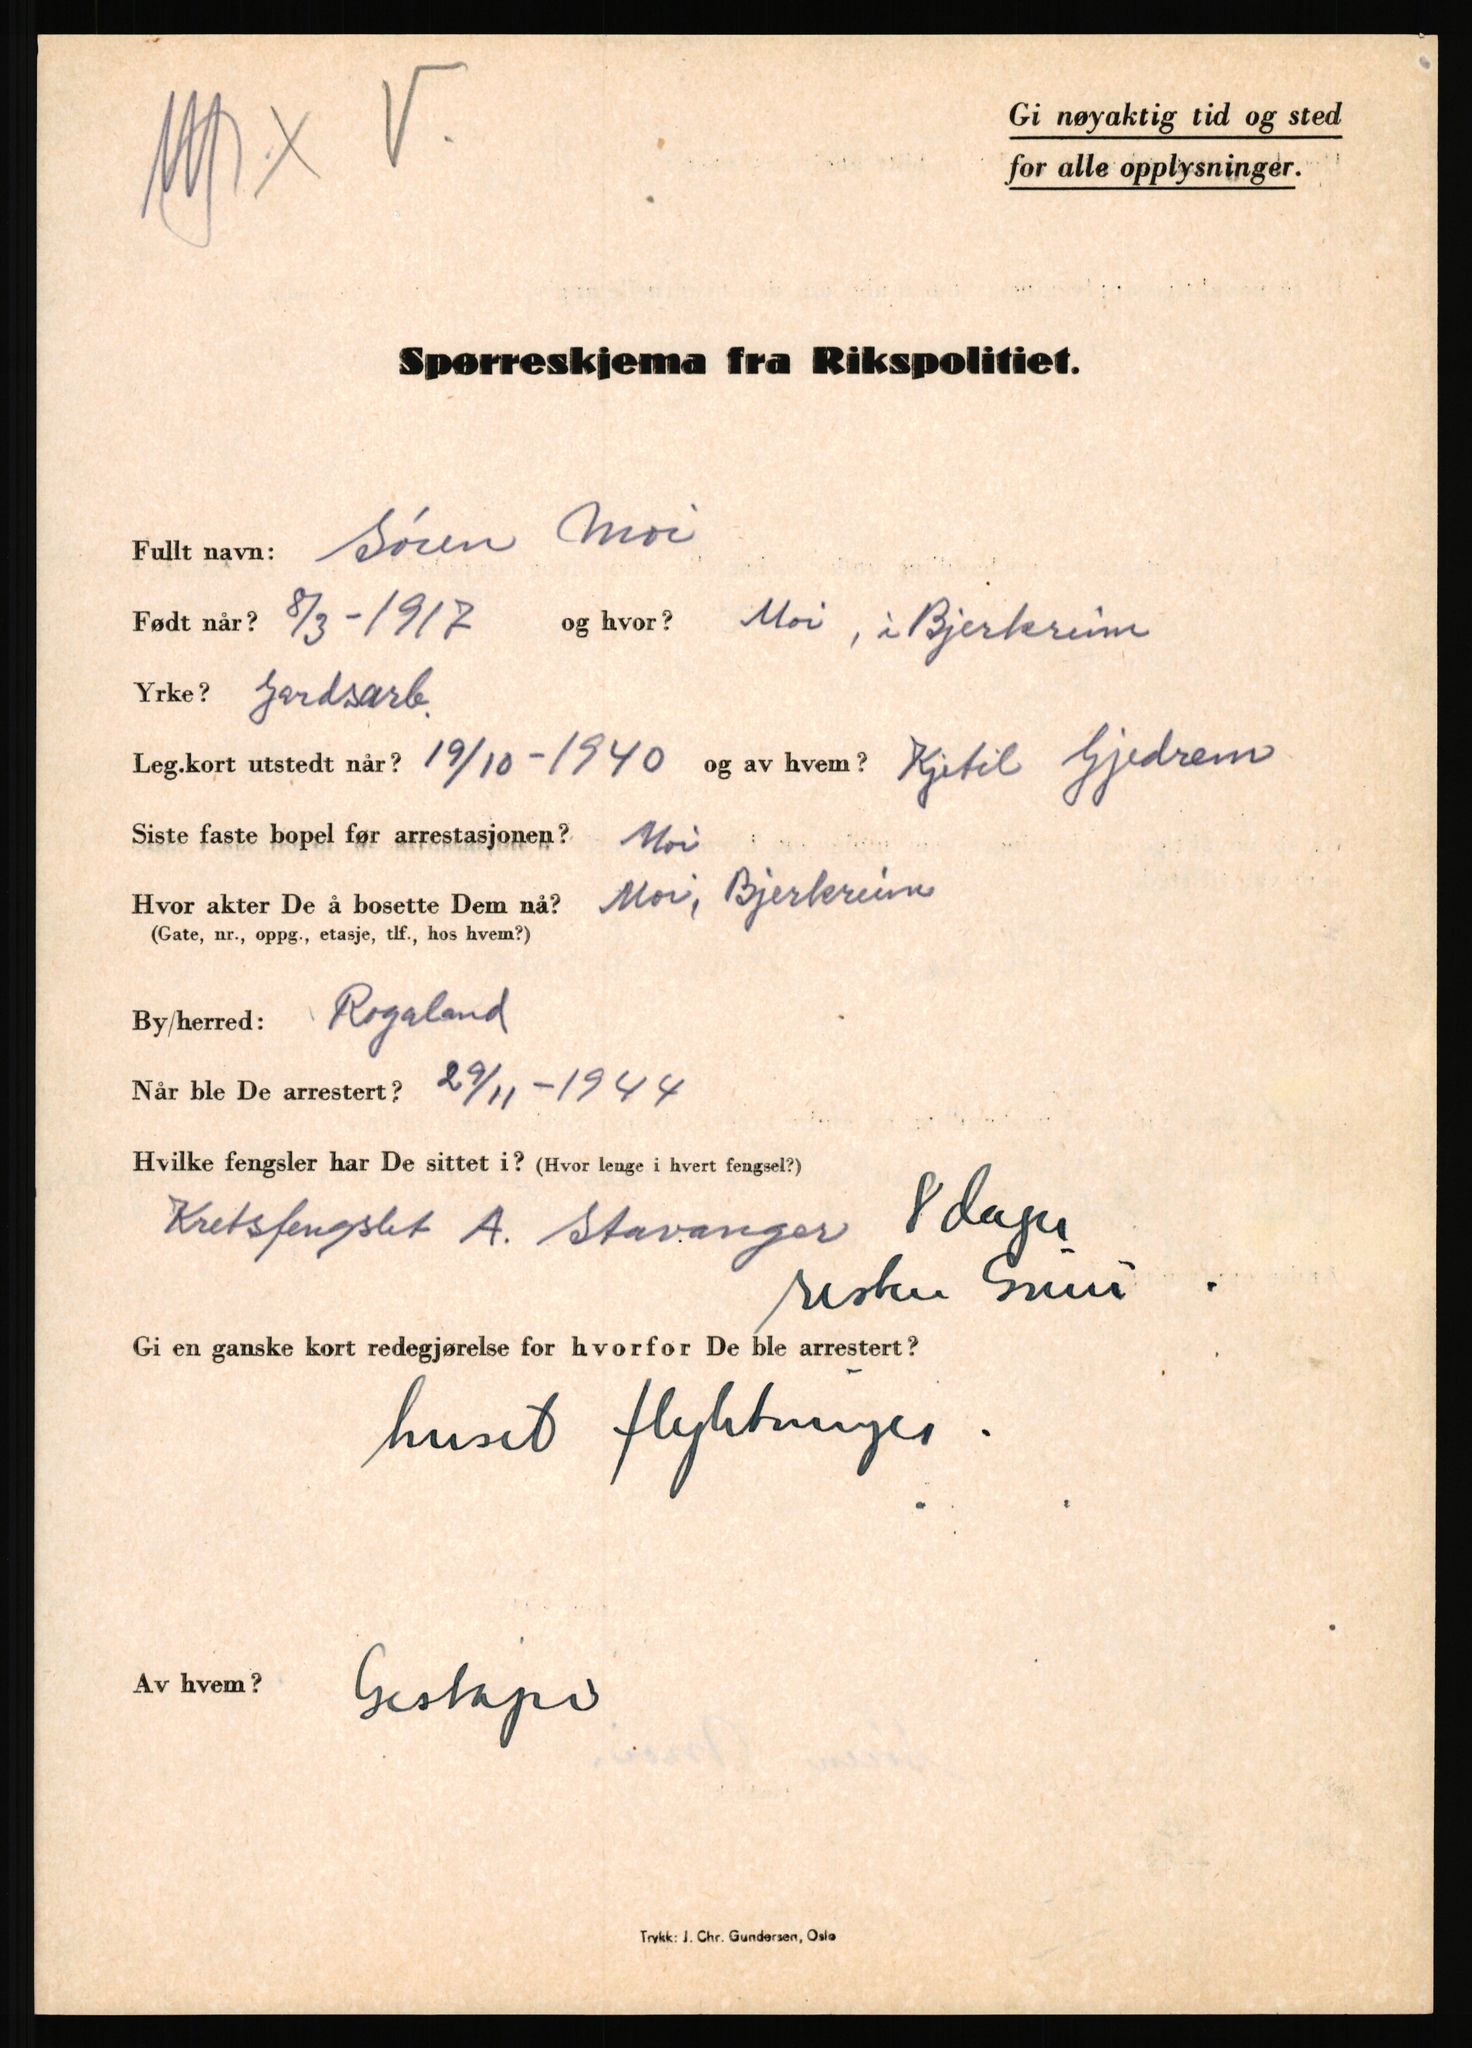 V.
Gi nøyaktig tid og sted
for alle opplysninger.
Spørreskjema fra Rikspolitiet.
Fullt navn: Sören Moi
Født når? 8/3-1917 og hvor? Moi, i Bjerkreim
Yrke? Gardsarb.
Leg.kort utstedt når? 19/10-1940 og av hvem? Kjetil Gjedrem
Siste faste bopel før arrestasjonen? Moi
Hvor akter De å bosette Dem nå? Moi, Bjerkreim
(Gate, nr., oppg., etasje, tlf., hos hvem?)
By/herred: Rogaland
Når ble De arrestert? 29/11-1944
Hvilke fengsler har De sittet i? (Hvor lenge i hvert fengsel?)
Kretsfengslet A. Stavanger 8 dager
resten Grini.
Gi en ganske kort redegjørelse for hvorfor De ble arrestert?
huset flyktninger.
Av hvem? Gestapo
Trykk: J. Chr. Gundersen, Oslo